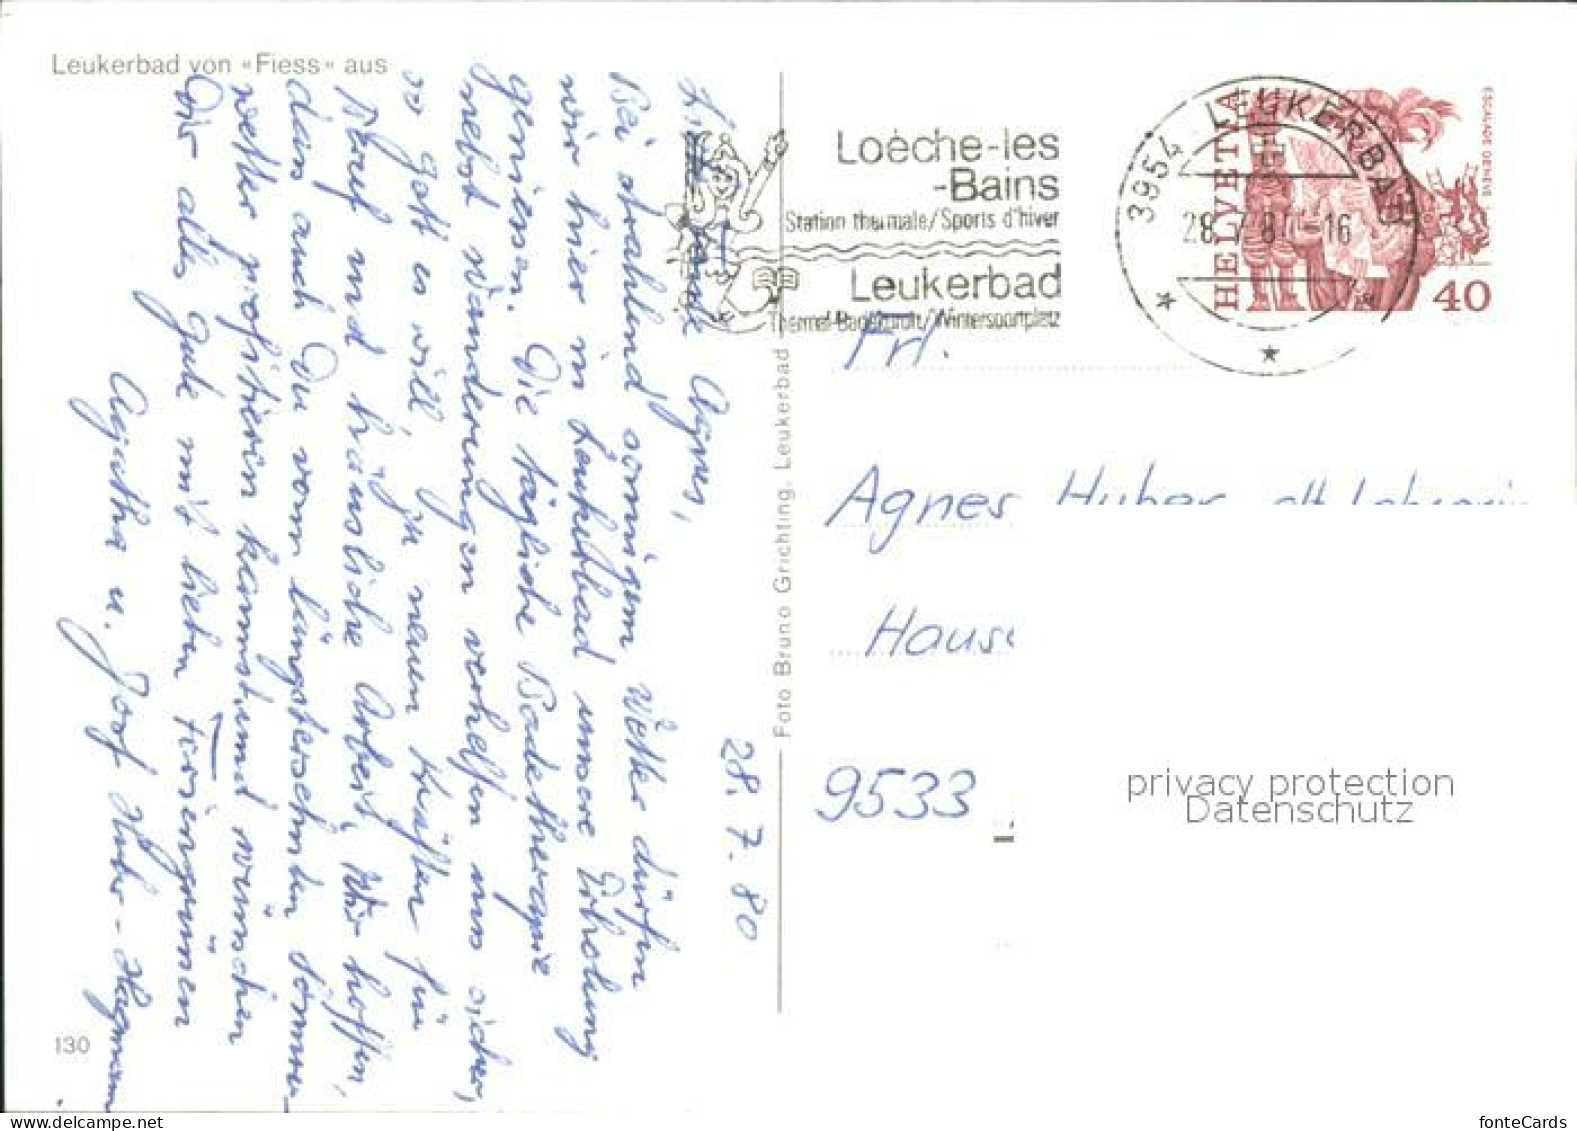 Leukerbad von «Fiess» aus
28.7.80
Liebe Tante Agnes,
Bei strahlend, sonnigem Wetter dürfen
wir hier in Leukerbad unsere Erholung
geniessen. Die tägliche Badetherapie
nebst Wanderungen verhelfen uns sicher,
so Gott es will, zu neuen Kräften für
Beruf und häusliche Arbeit. Wir hoffen,
dass auch Du vom langersehnten Sommer-
wetter profitieren kannst und wünschen
Dir alles Gute mit lieben Feriengrüssen
Agatha u. Josef Huber-Hagmann
130
Foto Bruno Grichting, Leukerbad
Loèche-les
-Bains
Station thermale/Sports d'hiver
Leukerbad
Thermal-Badekurort/Wintersportplatz
3954 LEUKERBAD
28.7.80-16
HELVETIA
ESCALADE GENEVE
40
Frl.
Agnes Huber, alt Lehrerin
Hause
9533
privacy protection
Datenschutz
fonteCards